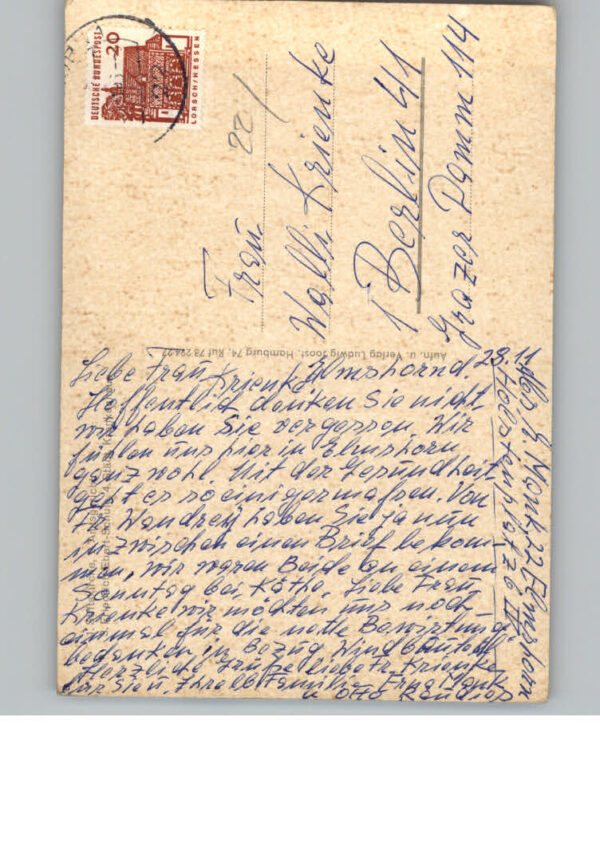 DEUTSCHE BUNDESPOST
20
LORSCH/HESSEN
221
Frau
Walli Krienke
1 Berlin 41
Grazer Damm 114
Aufn. u. Verlag Ludwig Joost, Hamburg 74, Ruf 73 224 22
Elmshorn d. 23.11
Liebe Frau Krienke
Hoffentlich denken Sie nicht
wir haben Sie vergessen. Wir
fühlen uns hier in Elmshorn
ganz wohl. Mit der Gesundheit
geht es so einigermaßen. Von
Fr. Wandrey haben Sie ja nun
inzwischen einen Brief bekom
men, wir waren Beide an einem
Sonntag bei Käthe. Liebe Frau
Krienke wir möchten uns noch
einmal für die nette Bewirtung
bedanken in Bezug Windbeutel
Herzliche Grüße liebe Fr. Krienke
für Sie u. Ihre lb Familie Erna Mank
u Otto
Abs. E. Mank 22 Elmshorn